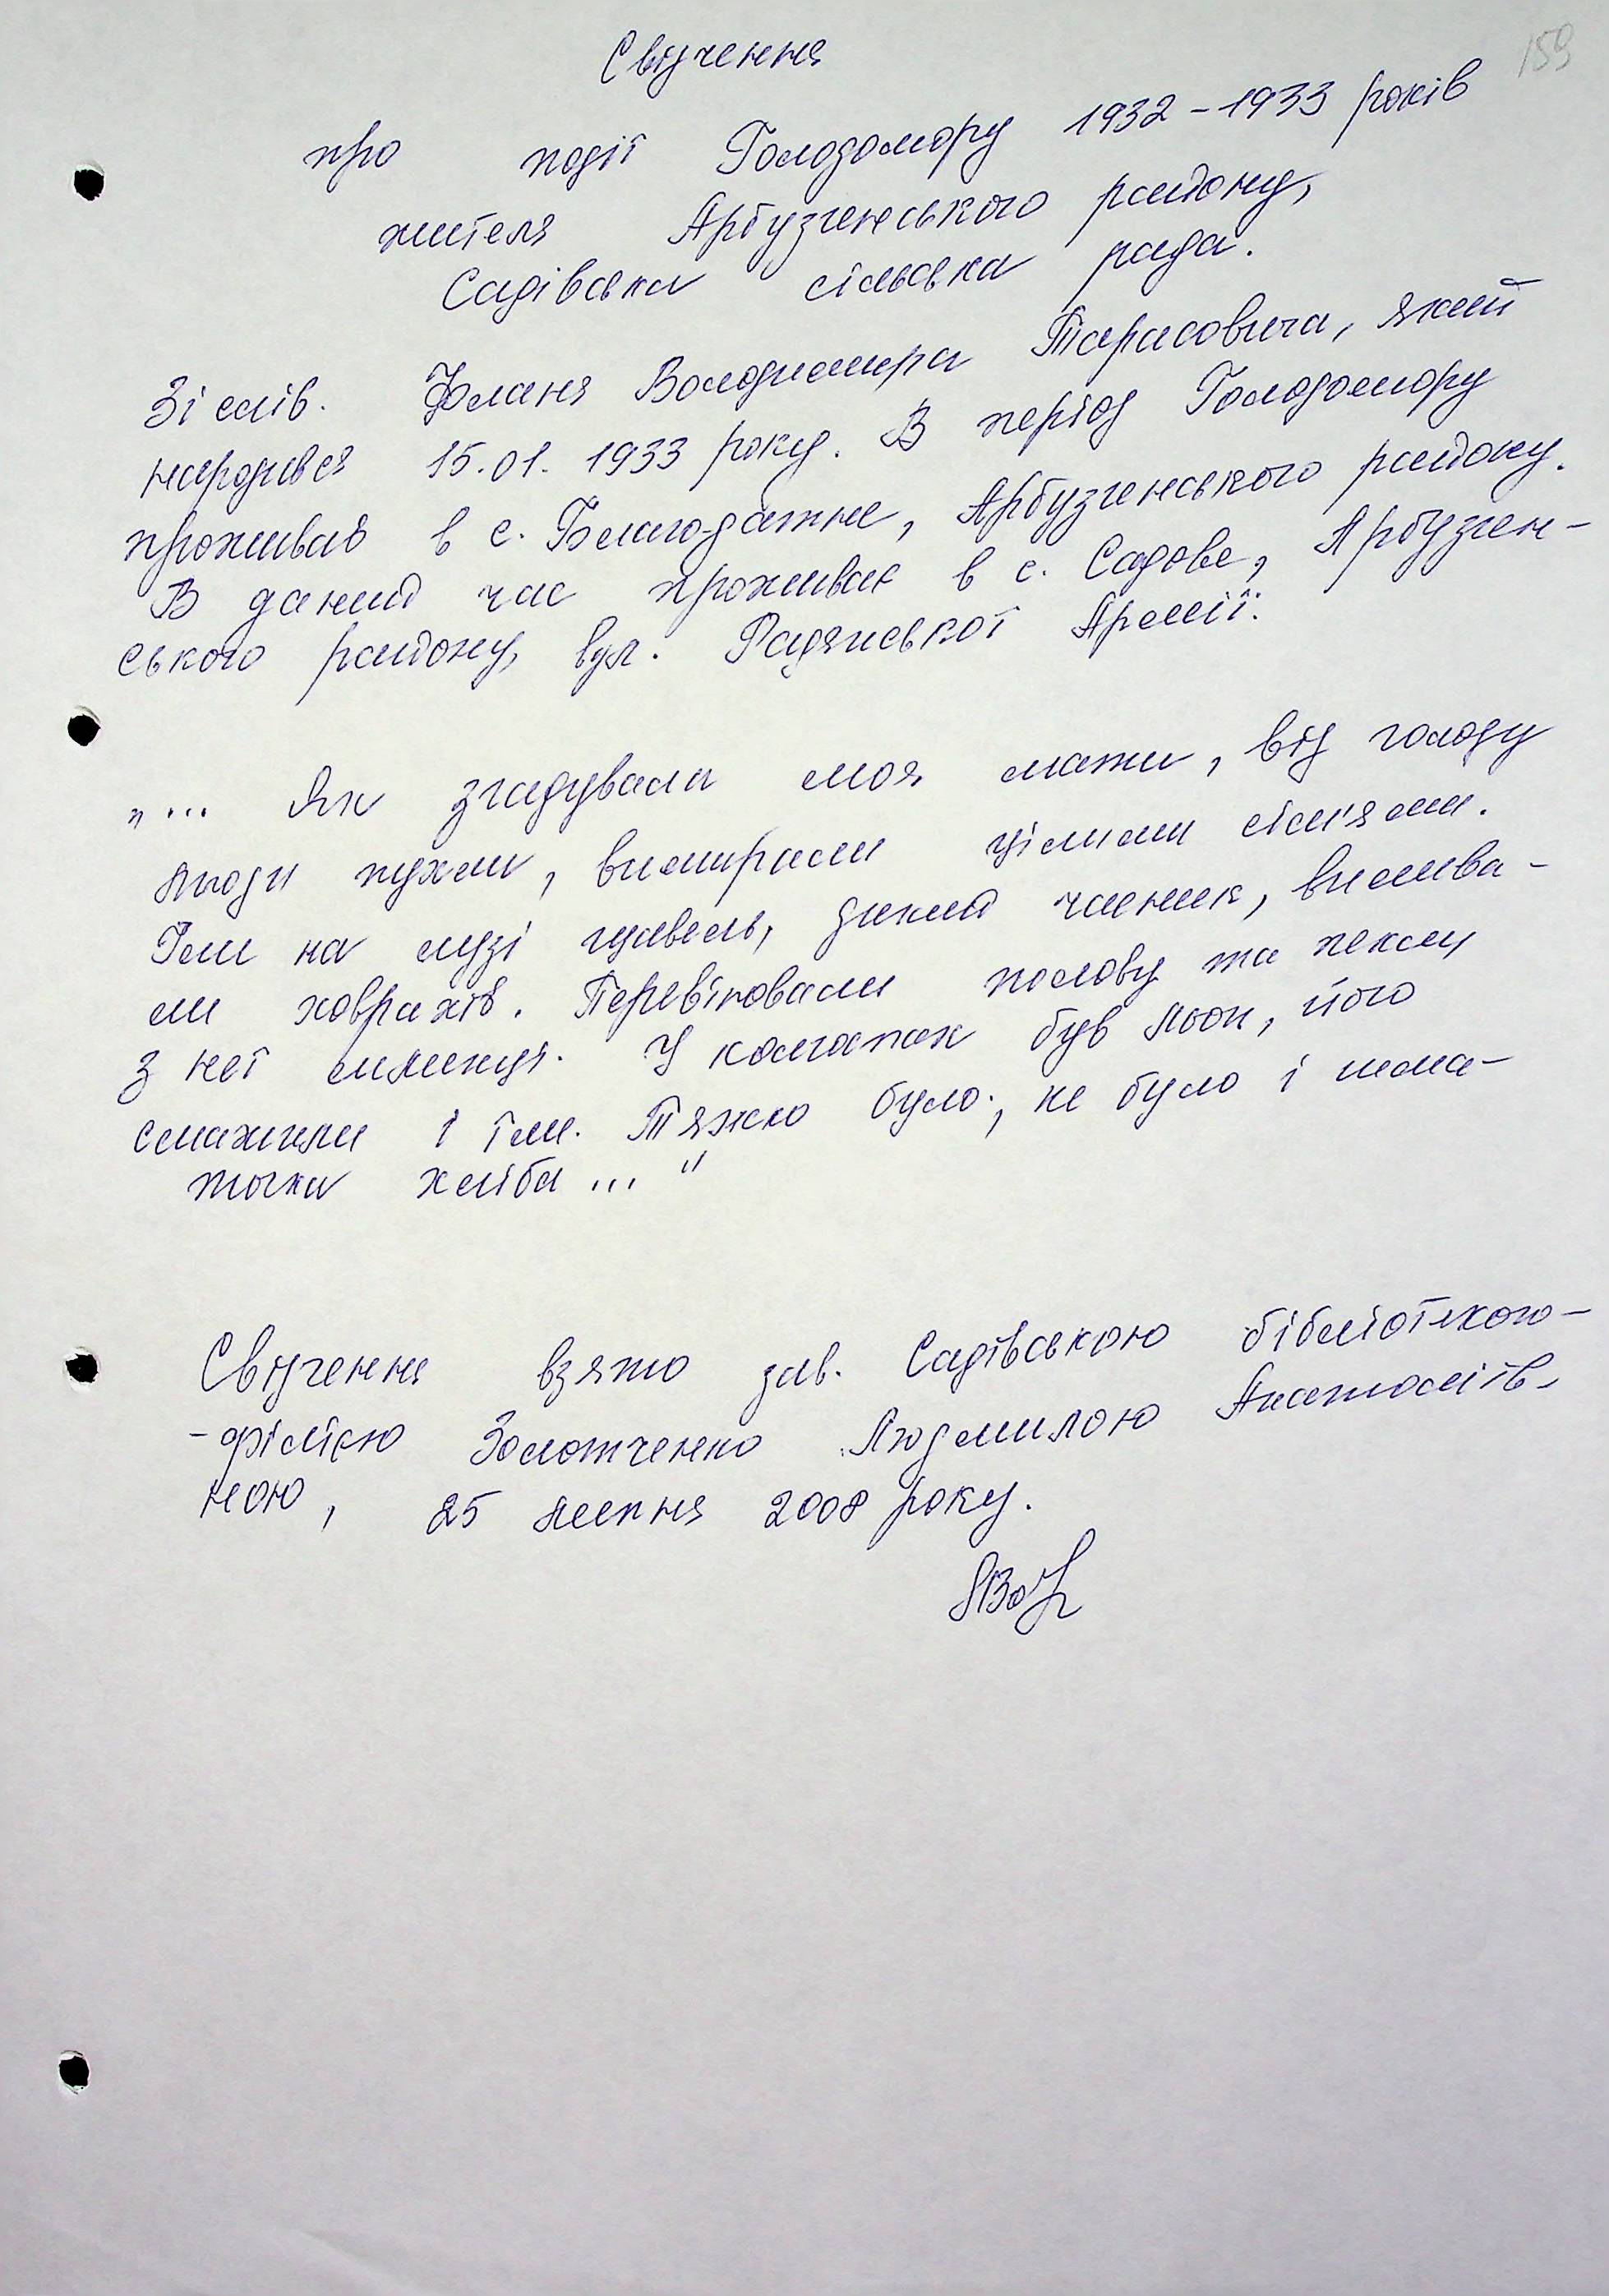 159
Свідчення
про події Голодомору 1932-1933 років
жителя Арбузинського району,
Садівська сільська рада.
Зі слів. Фланя Володимира Тарасовича, який
народився 15.01. 1933 року. В період Голодомору
проживав в с. Благодатне, Арбузинського району.
В даний час проживає в с. Садове, Арбузин-
ського району, вул. Радянської Армії.
"... Як згадувала моя мати, від голоду
люди пухли, вимирали цілими сім'ями.
Їли на лузі щавель, дикий часник, вилива-
ли ховрахів. Перевіювали полову та пекли
з неї млинці. У колгоспах був льон, його
смажили і їли. Тяжко було, не було і шма-
точка хліба..."
Свідчення взято зав. Садівською бібліотекою-
-філією Золотченко Людмилою Анатоліїв-
ною, 25 липня 2008 року.